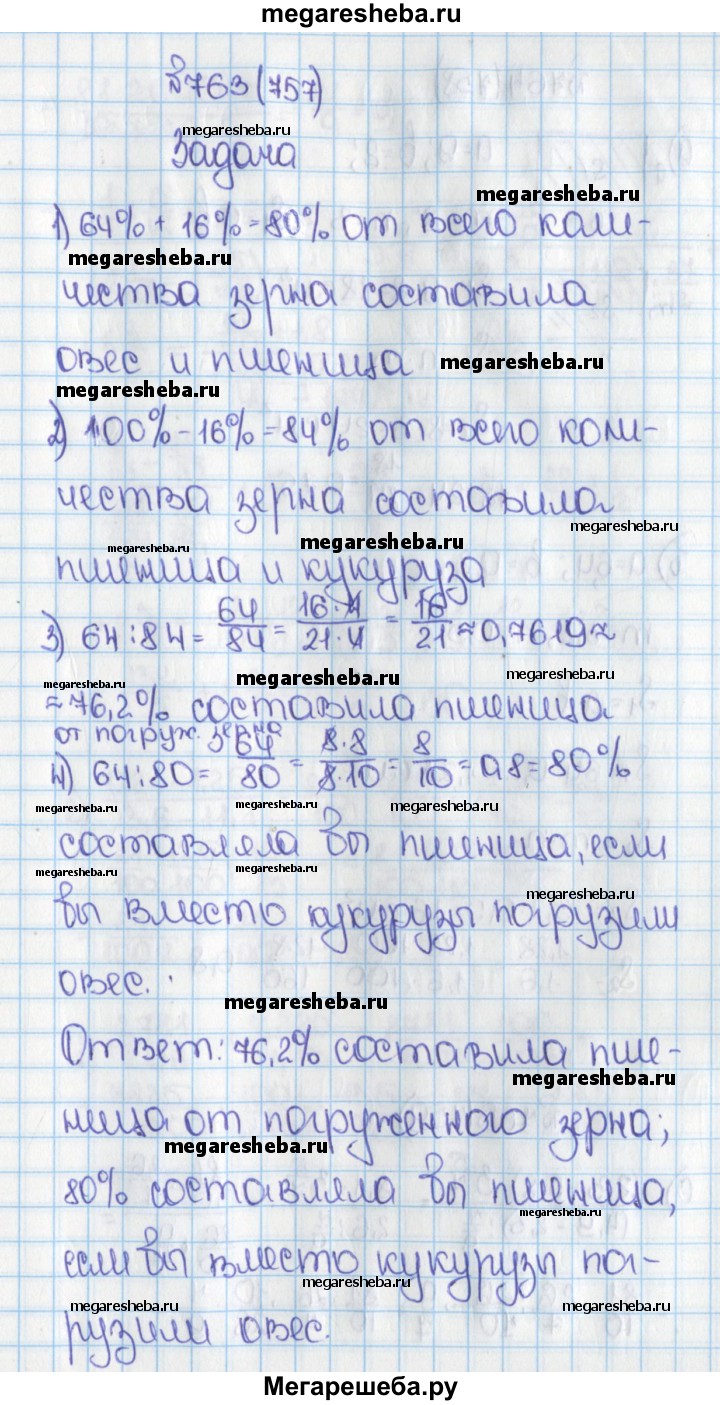 megaresheba.ru
№763(757)
megaresheba.ru
Задача
megaresheba.ru
1) 64% + 16% = 80% от всего коли-
megaresheba.ru
чества зерна составила
овес и пшеница megaresheba.ru
megaresheba.ru
2) 100% - 16% = 84% от всего коли-
чества зерна составила
megaresheba.ru
megaresheba.ru megaresheba.ru
пшеница и кукуруза
3) 64:84 = 64/84 = 16·4/21·4 = 16/21 ≈ 0,7619 ≈
megaresheba.ru megaresheba.ru megaresheba.ru
≈ 76,2% составила пшеница
от погруж. зерна
4) 64:80 = 64/80 = 8·8/8·10 = 8/10 = 0,8 = 80%
megaresheba.ru megaresheba.ru megaresheba.ru
составляла бы пшеница, если
megaresheba.ru megaresheba.ru
megaresheba.ru
бы вместо кукурузы погрузили
овес.
megaresheba.ru
Ответ: 76,2% составила пше-
megaresheba.ru
ница от погруженного зерна;
megaresheba.ru
80% составляла бы пшеница,
megaresheba.ru
если бы вместо кукурузы пог-
megaresheba.ru
megaresheba.ru megaresheba.ru
рузили овес.
Мегарешеба.ру